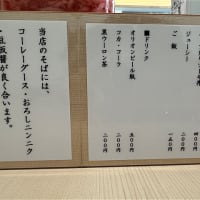 ジューシー 二〇〇円
ご飯 一五〇円
■ドリンク
オリオンビール瓶 五〇〇円
コカ・コーラ 二〇〇円
黒ウーロン茶 二〇〇円
当店のそばには、
コーレーグース・おろしニンニク
・豆板醤が良く合います。